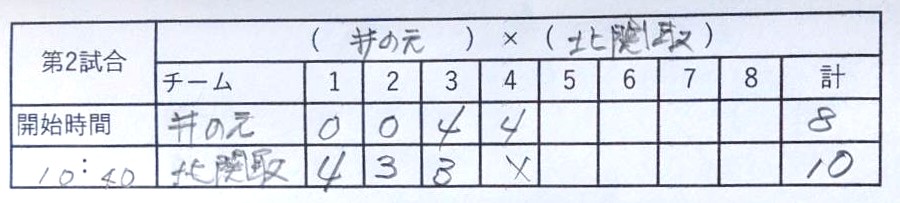 第2試合 ( 井の元 ) × ( 北関取 )
チーム 1 2 3 4 5 6 7 8 計
開始時間 井の元 0 0 4 4 8
10:40 北関取 4 3 3 X 10